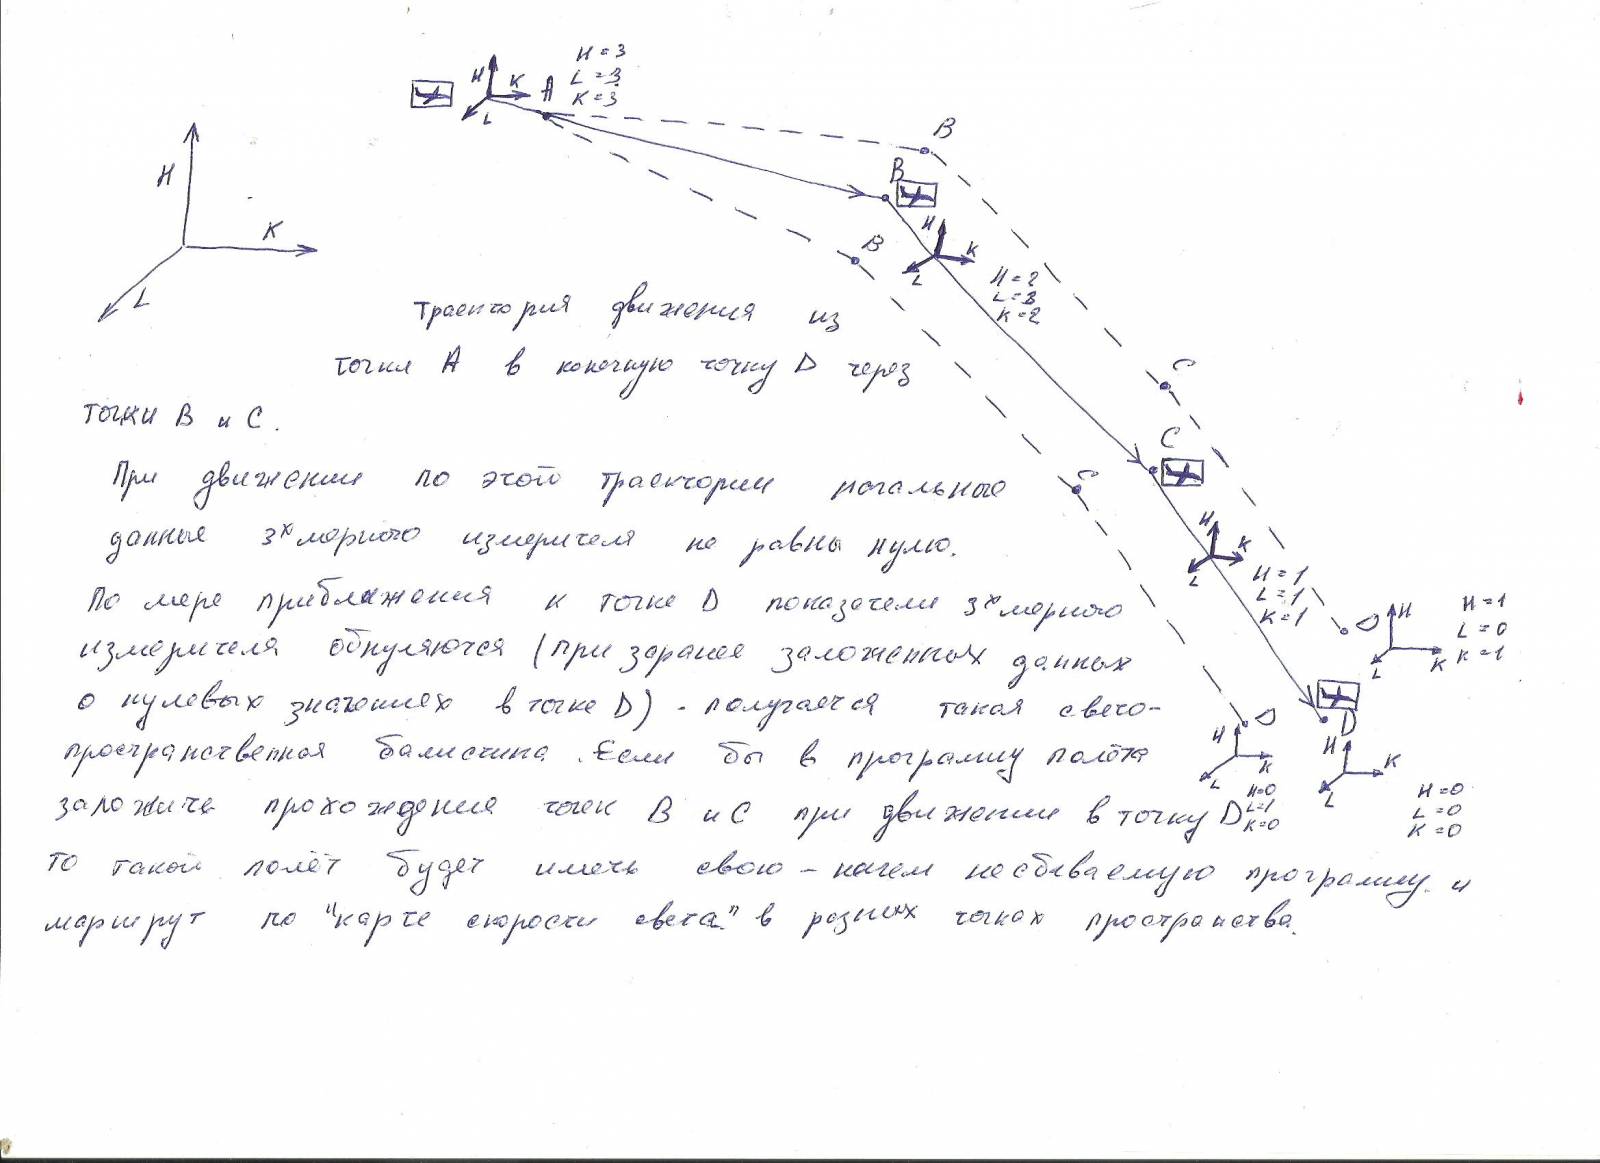 H
K
L
H
K
L
A
H=3
L=3
K=3
B
B
B
H
K
L
H=2
L=3
K=2
Траектория движения из
точки А в конечную точку D через
точки В и С.
C
C
C
При движении по этой траектории
данные 3х мерного измерителя не равны нулю.
H
K
L
H=1
L=1
K=1
По мере приближения к точке D показатели 3х мерного
измерителя обнуляются (при заранее заложенных данных
о нулевых значениях в точке D) - получается такая свето-
пространственная балистика. Если бы в программу полёта
заложить прохождения точек В и С при движении в точку D
то такой полёт будет иметь свою - ничем несбиваемую программу и
маршрут по "карте скорости света" в разных точках пространства.
D
H
K
L
H=1
L=0
K=1
D
H
K
L
H=0
L=1
K=0
D
H
K
L
H=0
L=0
K=0